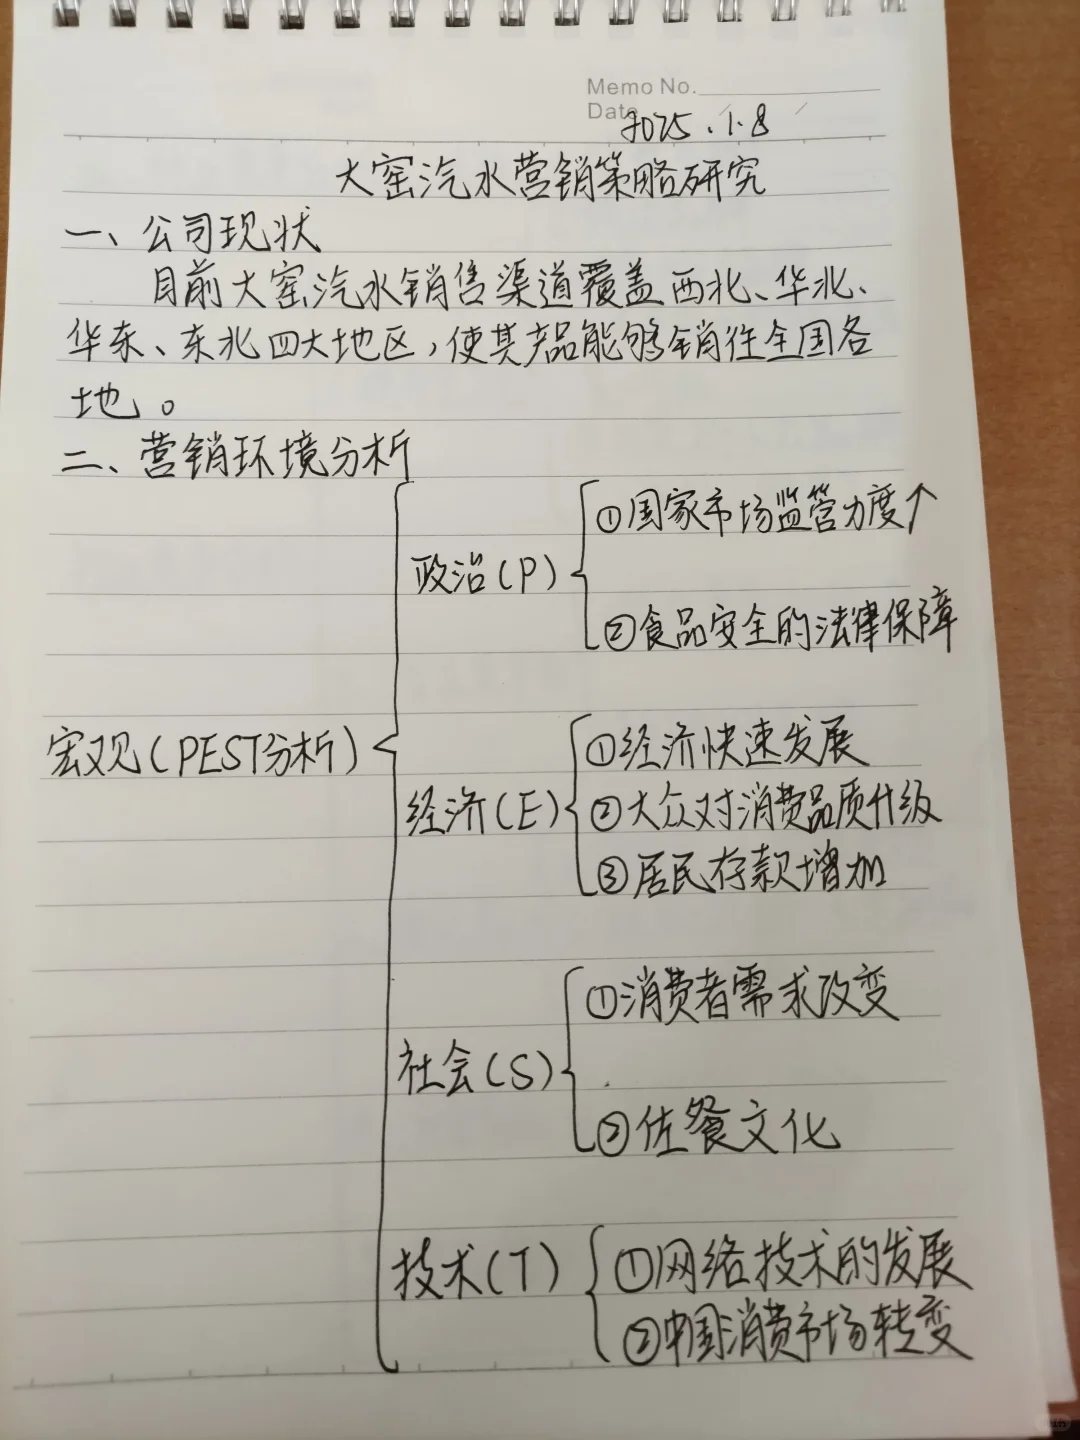 Memo No.
Date 2025.1.8
大窑汽水营销策略研究
一、公司现状
目前大窑汽水销售渠道覆盖西北、华北、
华东、东北四大地区,使其产品能够销往全国各
地。
二、营销环境分析
宏观(PEST分析)
政治(P)
①国家市场监管力度↑
②食品安全的法律保障
经济(E)
①经济快速发展
②大众对消费品质升级
③居民存款增加
社会(S)
①消费者需求改变
②佐餐文化
技术(T)
①网络技术的发展
②中国消费市场转变